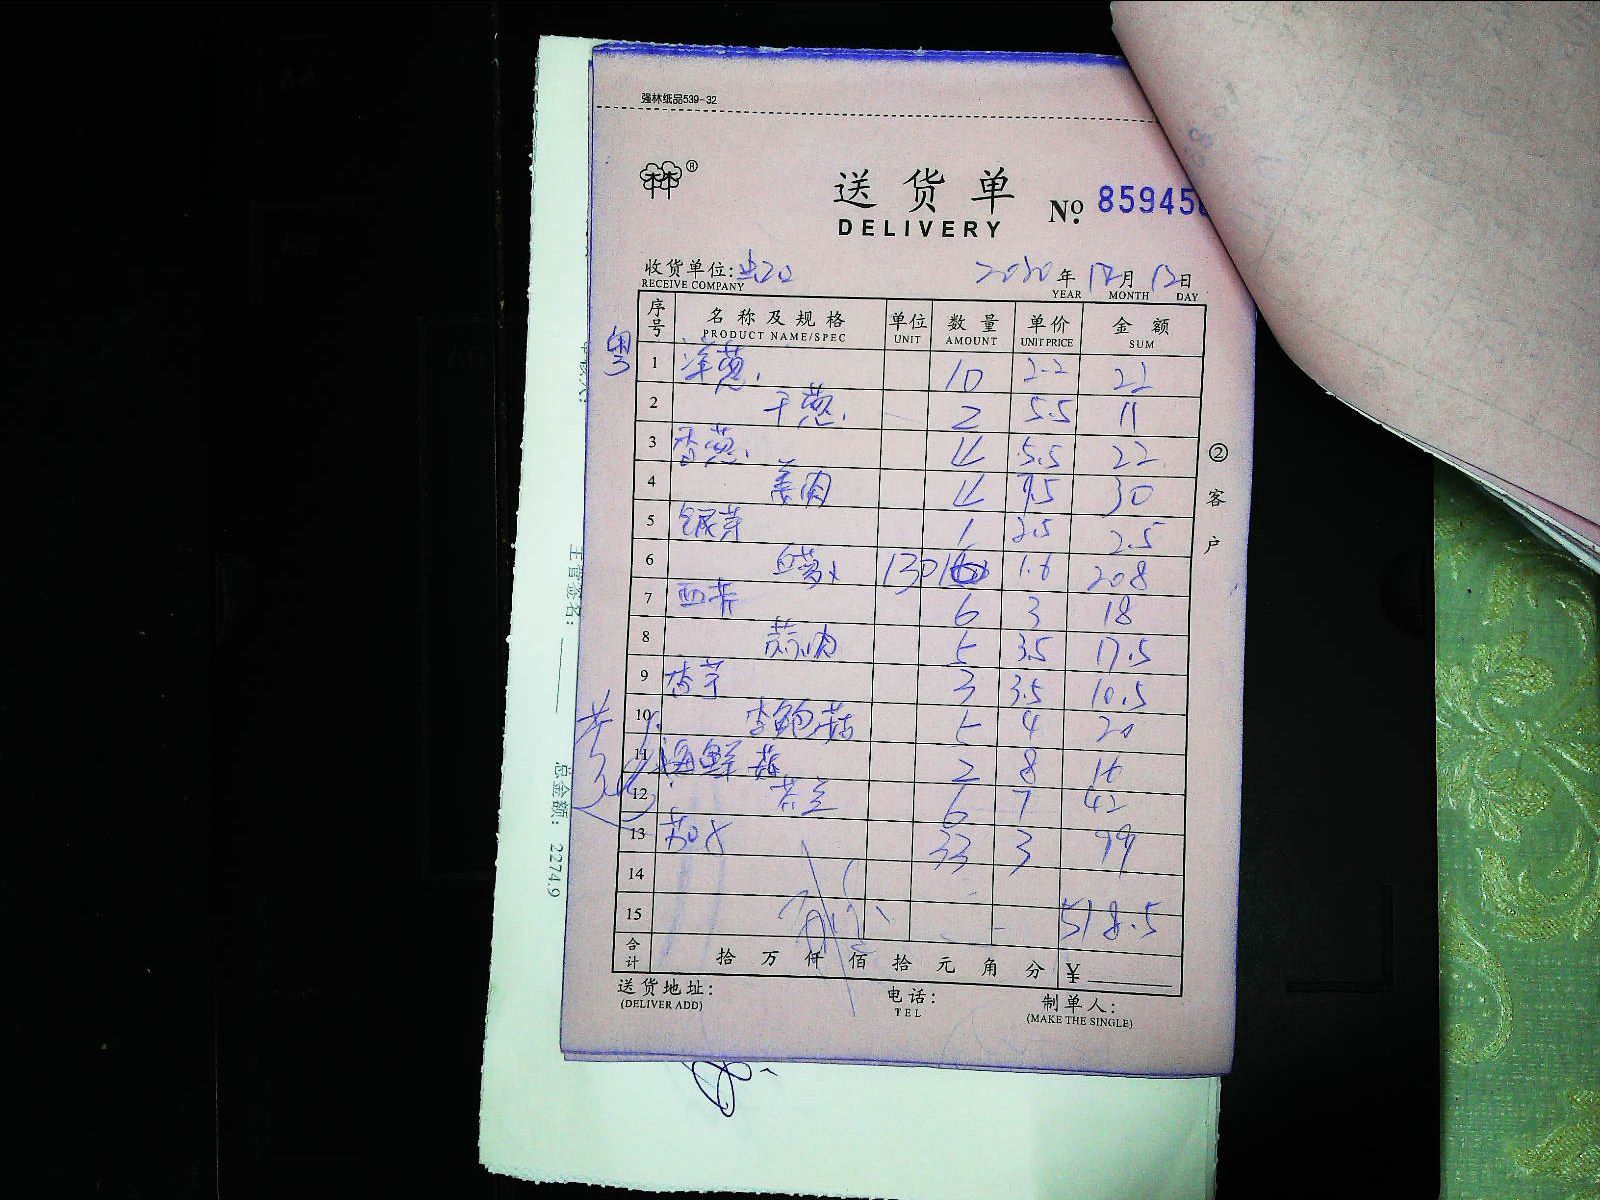 强林纸品539-32
®
送货单
DELIVERY
№ 85945
收货单位:
RECEIVE COMPANY
2020年12月12日
YEAR MONTH DAY
序号 名称及规格 单位 数量 单价 金额
PRODUCT NAME/SPEC UNIT AMOUNT UNIT PRICE SUM
粤
1 洋葱 10 2.2 22
2 干葱 2 5.5 11
3 香葱 4 5.5 22
4 姜肉 4 7.5 30
5 银芽 1 2.5 2.5
6 130 1.6 208
7 西芹 6 3 18
8 蒜肉 5 3.5 17.5
9 香芋 3 3.5 10.5
10 杏鲍菇 5 4 20
11 海鲜菇 2 8 16
12 6 7 42
13 33 3 99
14
15 518.5
合计 拾 万 仟 佰 拾 元 角 分 ¥
送货地址:
(DELIVER ADD)
电话:
TEL
制单人:
(MAKE THE SINGLE)
②客户
主管签名:
总金额: 2274.9